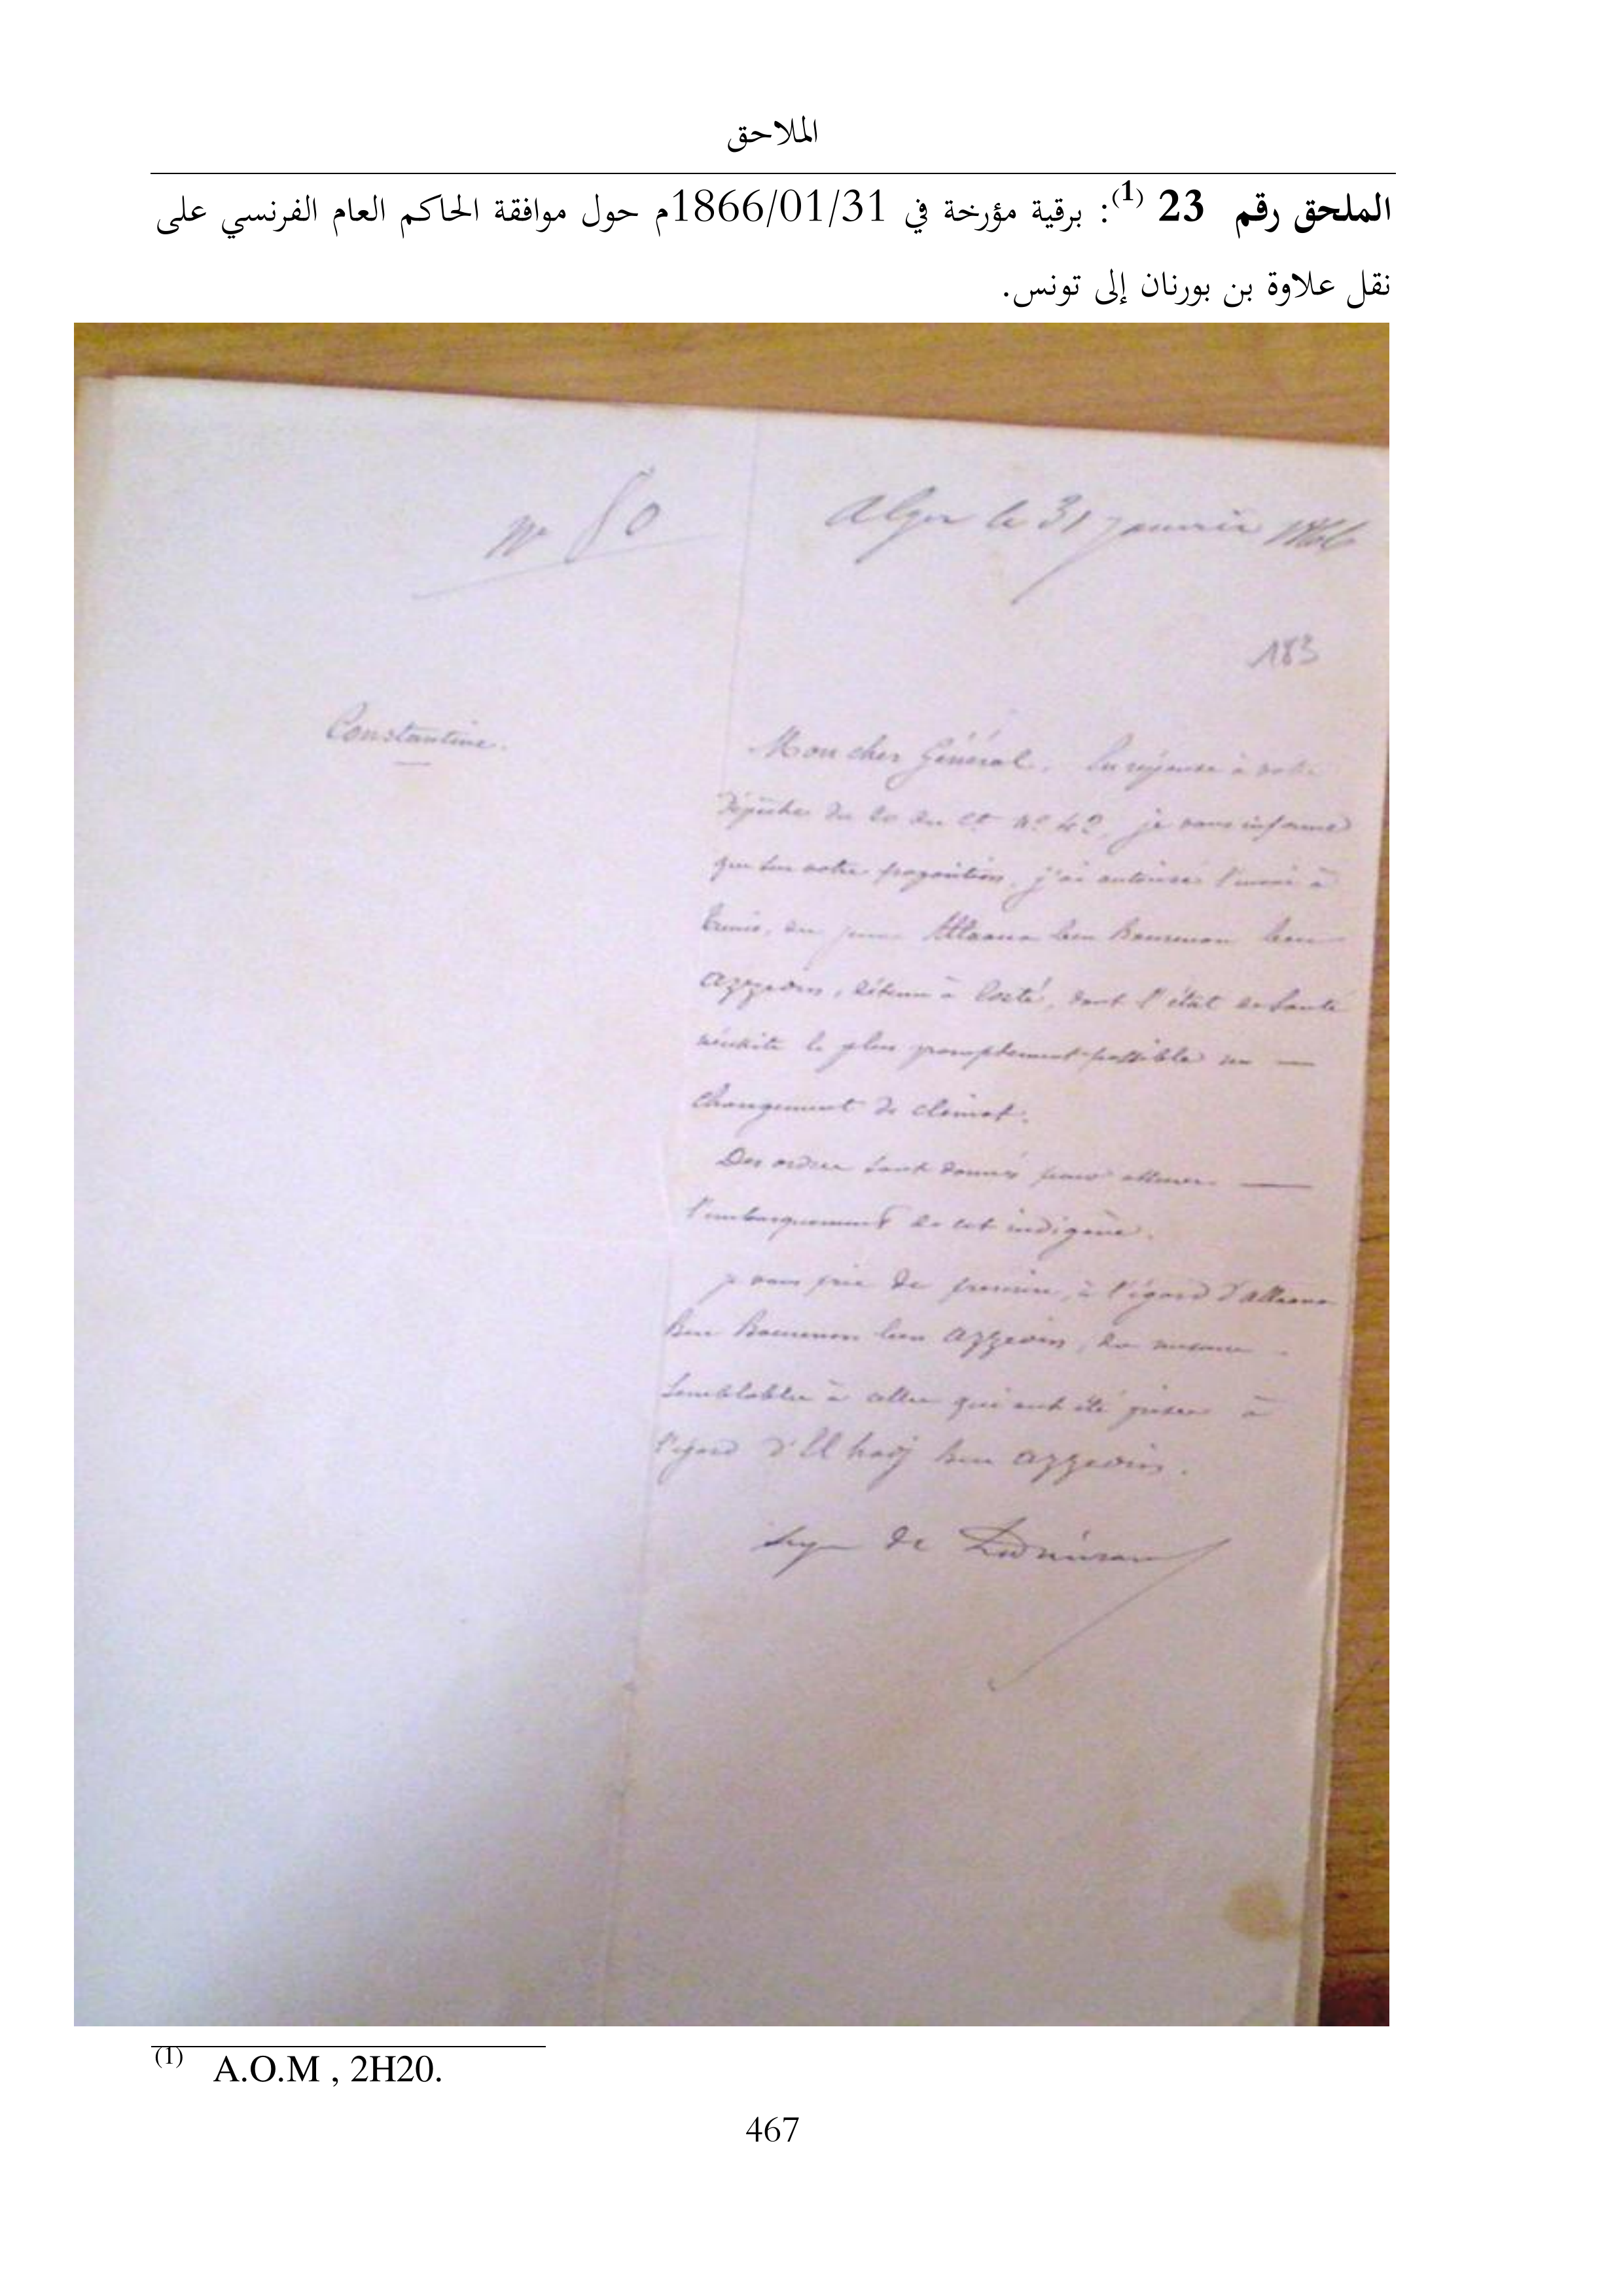 الملاحق
الملحق رقم 23 (1): برقية مؤرخة في 1866/01/31م حول موافقة الحاكم العام الفرنسي على
نقل علاوة بن بورنان إلى تونس.
Alger le 31 janvier 1866
183
Constantine.
Mon cher Général. En réponse à votre
dépêche du 20 du ct n° 42, je vous informe
que sur votre proposition, j'ai autorisé l'envoi à
Tunis, du jeune Allaoua ben Bournan ben
Azzedin, détenu à Corté, dont l'état de santé
nécessite le plus promptement possible un
changement de climat.
Des ordres sont donnés pour assurer
l'embarquement de cet indigène.
Je vous prie de prendre, à l'égard d'Allaoua
Ben Bournan ben Azzedin, des mesures
semblables à celles qui ont été prises à
l'égard d'El hadj ben Azzedin.
Signé de
(1) A.O.M , 2H20.
467